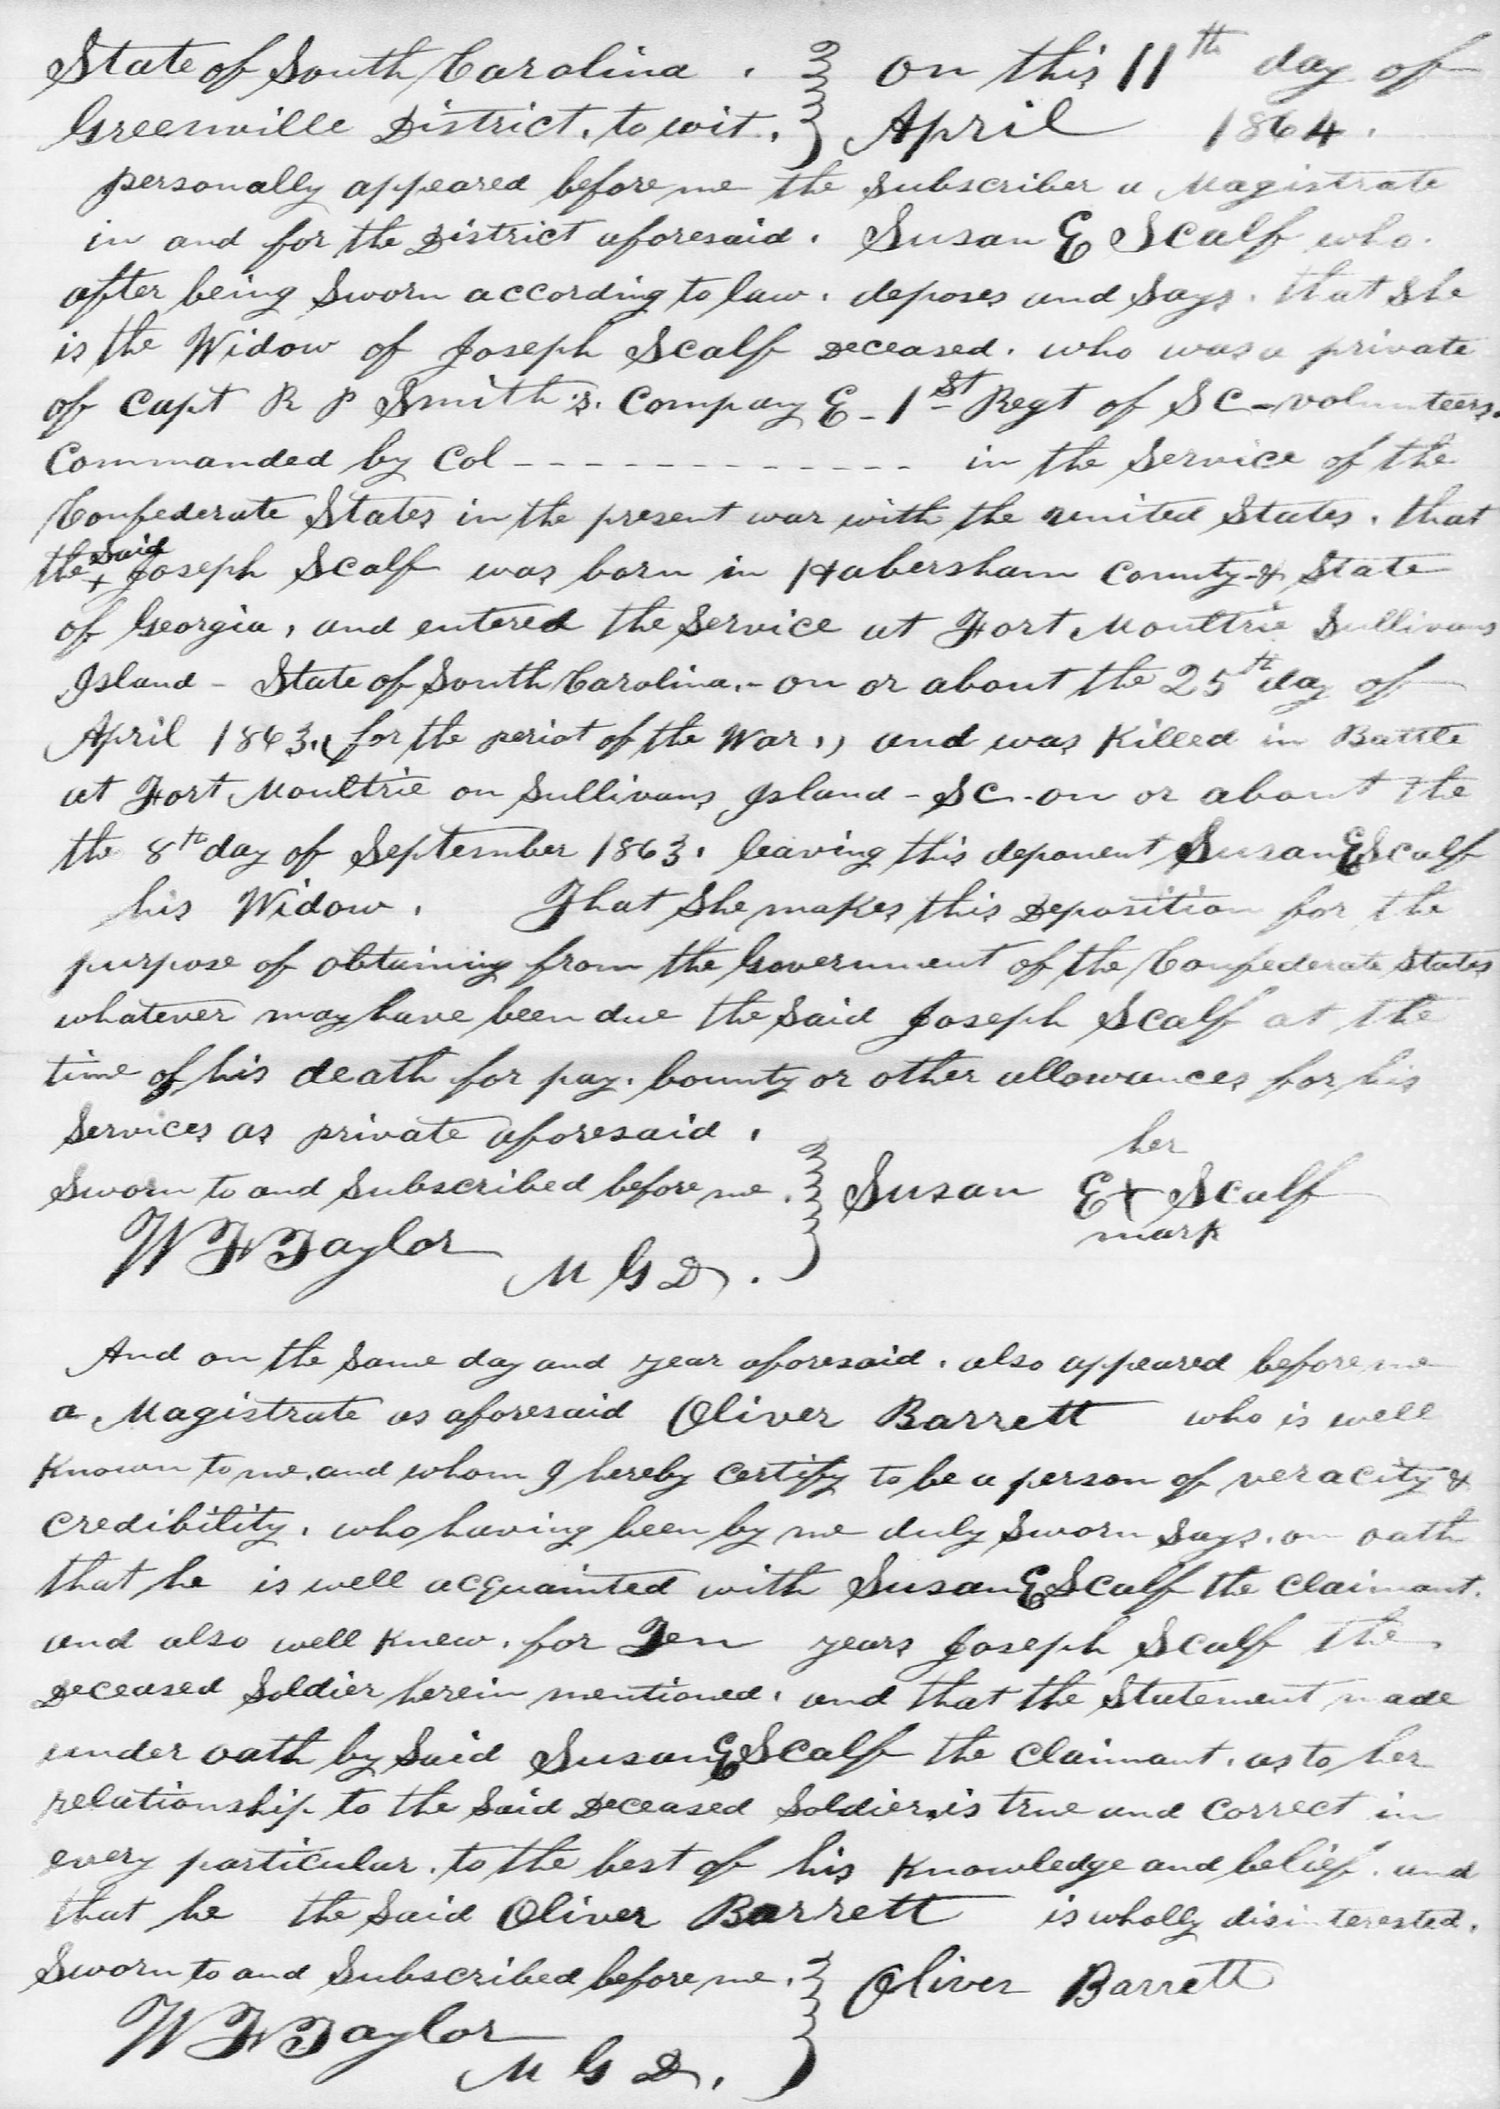 State of South Carolina . } on this 11th day of
Greenville District. to wit. } April 1864.
personally appeared before me the Subscriber a Magistrate
in and for the District aforesaid. Susan E Scalf who.
after being Sworn according to law. deposes and Says. that She
is the Widow of Joseph Scalf Deceased. who was a private
of Capt R P Smith's. Company E - 1st Regt of SC - volunteers.
Commanded by Col - - - - - - - - - - - - - in the Service of the
Confederate States in the present war with the united States. that
the Said x Joseph Scalf was born in Habersham County & State
of Georgia, and entered the Service at Fort Moultrie Sullivans
Island - State of South Carolina. - on or about the 25th day of
April 1863. (for the periot of the War.,) and was Killed in Battle
at Fort Moultrie on Sullivans Island - SC - on or about the
the 8th day of September 1863. leaving this deponent Susan E Scalf
his Widow. That She makes this Deposition for the
purpose of obtaining from the Government of the Confederate States
whatever may have been due the Said Joseph Scalf at the
time of his death for pay. bounty or other allowances for his
Services as private aforesaid.
her
Sworn to and Subscribed before me. } Susan E x Scalf
mark
W H Taylor
M G D.
And on the Same day and year aforesaid. also appeared before me
a Magistrate as aforesaid Oliver Barrett who is well
Known to me. and whom I hereby Certify to be a person of veracity &
Credibility. who having been by me duly Sworn Says. on oath
that he is well acquainted with Susan E Scalf the Claimant.
and also well Knew. for Ten years Joseph Scalf the
Deceased Soldier herein mentioned. and that the Statement made
under oath by Said Susan E Scalf the Claimant. as to her
relationship to the Said Deceased Soldier. is true and Correct in
every particular. to the best of his Knowledge and belief. and
that he the Said Oliver Barrett is wholly disinterested.
Sworn to and Subscribed before me. } Oliver Barrett
W H Taylor
M G D.